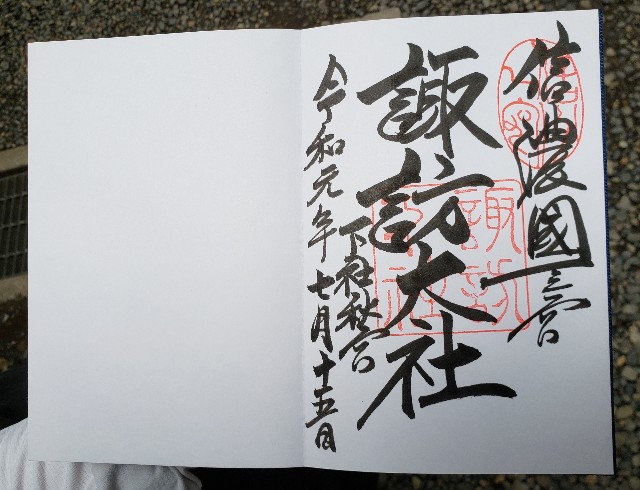 信濃國一之宮
諏訪大社
下社秋宮
令和元年七月十五日